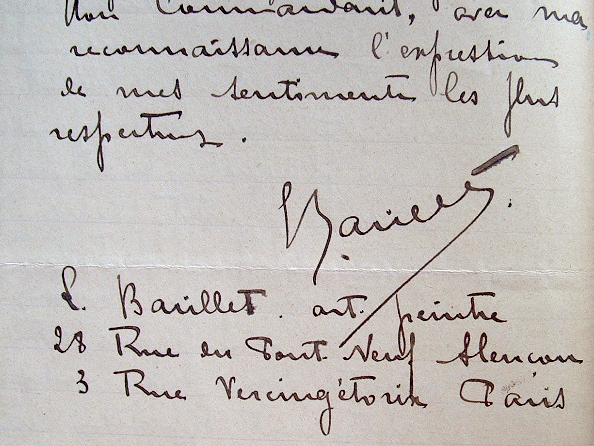 mon Commandant, avec ma
reconnaissance l'expression
de mes sentiments les plus
respectueux.
L Barillet.
L. Barillet. art. peintre
28 Rue du Pont Neuf Alencon
3 Rue Vercingétorix Paris